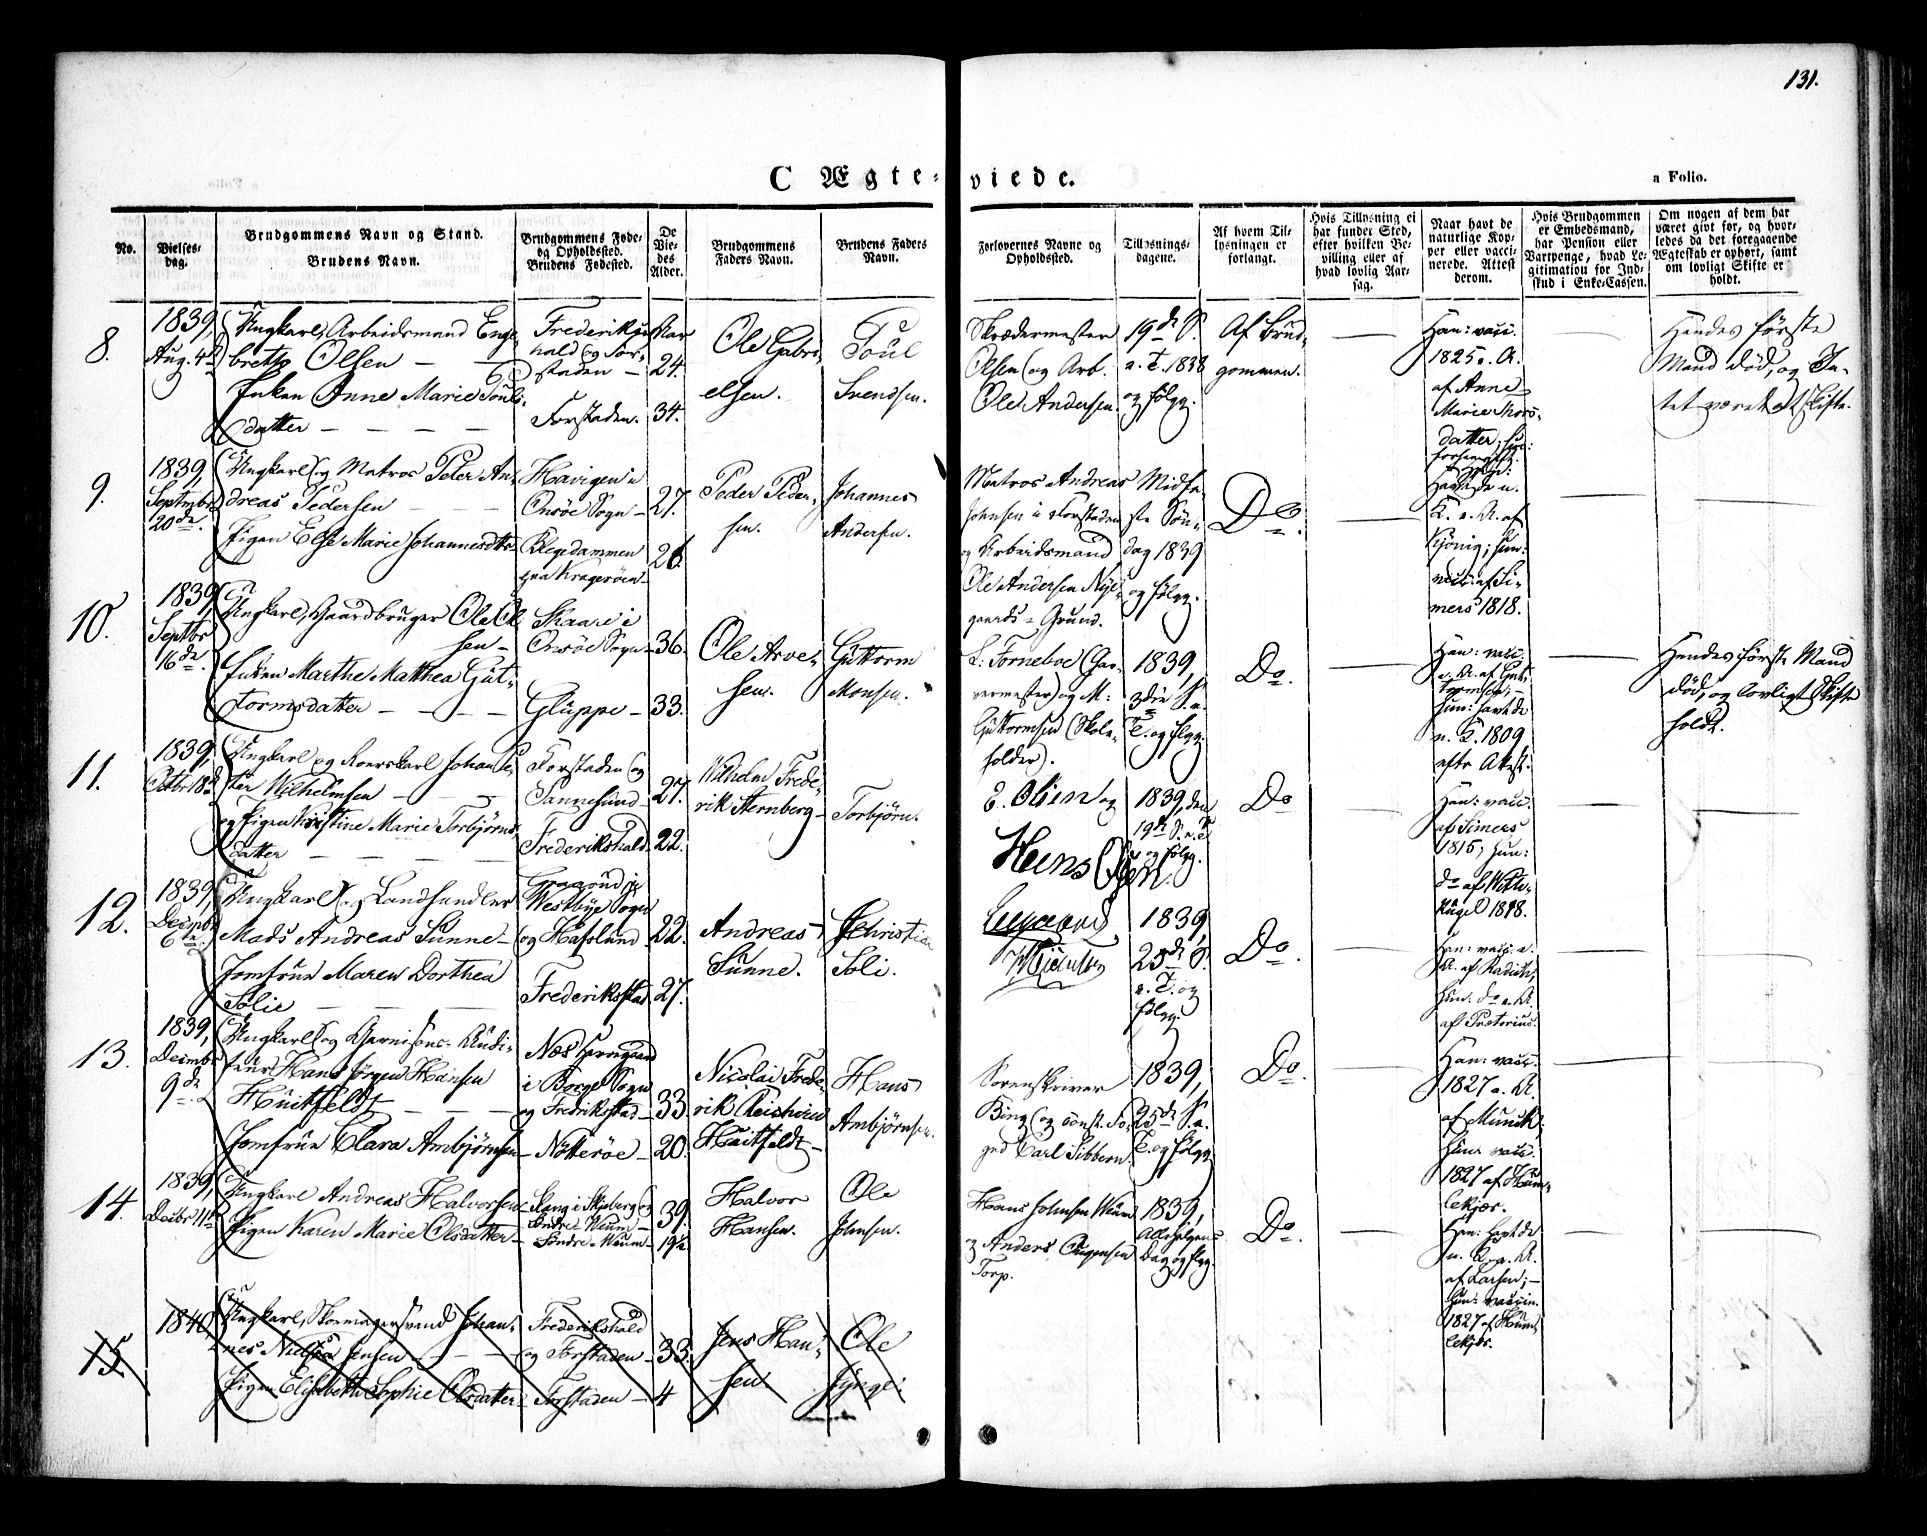 131.
C Ægte-viede.
a Folio.
No.
Vielses-
dag.
Brudgommens Navn og Stand.
Brudens Navn.
Brudgommens Føde-
og Opholdssted.
Brudens Fødested.
De
Vie-
des
Alder.
Brudgommens
Faders Navn.
Brudens Faders
Navn.
Forlovernes Navne og
Opholdssted.
Tillysnings-
dagene.
Af hvem Til-
lysningen er
forlangt.
Hvis Tillysning ei
har fundet Sted,
efter hvilken Be-
villing eller af
hvad lovlig Aar-
sag.
Naar havt de
naturlige Kop-
per eller vacci-
nerede. Attest
derom.
Hvis Brudgommen
er Embedsmand,
har Pension eller
Vartpenge, hvad Le-
gitimation for Ind-
skud i Enke-Cassen.
Om nogen af dem har
været givt før, og hvor-
ledes da det foregaaende
Ægteskab er ophørt, samt
om lovligt Skifte er
holdt.
8.
1839,
Aug. 4de
Ungkarl, Arbeidsmand Enge-
bretto Olsen
Enken Anne Marie Pouls-
datter
Frederiks-
hald og For-
staden
Forstaden.
Aar
24.
34.
Ole Gabri-
elsen.
Poul
Svendsen.
Skrædermester
Olsen og Arb.
Ole Andersen.
19de S.
e. T. 1838
og følgg.
Af Brud-
gommen.
Han: vacc.
1825 e. A.
af Anne
Marie Thors-
datter;
Hendes første
Mand død, og In-
tet været at skifte.
9.
1839,
Septmbr
20de.
Ungkarl og Matros Peter An-
dreas Pedersen
Pigen Else Marie Johannesdtr
Havigen i
Onsöe Sogn
Blegedammen
paa Kragerøen
27.
26
Peder Peder-
sen.
Johannes
Andersen.
Matros Andreas
Johnsen i Forstaden
og Arbeidsmand
Ole Andersen Nye-
gaards-Grund.
Midfa-
ste Søn-
dag 1839
og følgg.
Do.
havt de n.
K. e. A. af
Kjönig; hun:
vacc. af Si-
mers 1818.
10.
1839,
Septbr
16de.
Ungkarl, Gaardbruger Ole Ol-
sen
Enken Marthe Mathea Gut-
tormsdatter
Skaare i
Onsöe Sogn
Gluppe
36.
33.
Ole Arve-
sen.
Guttorm
Monsen.
L. Torneboe (Gar-
vermester) og M:
Guttormsen (Skole-
holder).
1839,
3die S. e.
T. og flgg.
Do.
Han: vacc.
e. A. af Gut-
tormsen;
hun: havt de
n. K. 1809
efter Atest.
Hendes første Mand
død, og lovligt Skifte
holdt.
11.
1839,
Octbr 18de
Ungkarl og Roerskarl Johan Pe-
ter Wilhelmsen
og Pigen Kristine Marie Torbjörns-
datter
Forstaden og
Sannesund
Frederikshald
27.
22.
Wilhelm Frede-
rik Sternberg
Torbjörn.
E. Olsen og
Hans Olsen
1839, den
19de S. e. T.
og følgg.
Do
Han: vacc.
af Simers
1815; hun:
do af Witte-
Kugel 1818.
12.
1839,
Decmbr
6te.
Ungkarl, Landhandler
Mads Andreas Sunne
Jomfrue Maren Dorthea
Solie
Westbye Sogn
og Hafslund
Frederikstad
22.
27.
Andreas
Sunne.
Christian
Soli.
1839,
25de S.
e. T. og
følgg.
Do.
Han: vacc. e.
A. af Radich,
hun: do e. A.
af Prætorius.
13.
1839,
Decmbr
9de.
Ungkarl og Gernisons-Audi-
teur Hans Jörgen Hansen
Hüitfeldt
Jomfrue Clara Ambjörnsen
Næs Herregaard
i Borge Sogn
og Fredrikstad
Nötteröe
33.
20.
Nicolai Frede-
rik
Hüitfeldt
Hans
Ambjörnsen.
Sorenskriver
Bing og const. Fo-
ged Carl Sibbern.
1839,
25de S. e.
T. og følgg.
Do.
Han: vacc.
1827 e. A.
af Munch;
hun vacc.
1827 af Hum-
lekjær.
14.
1839,
Decbr 11te
Ungkarl Andreas Halvorsen
Pigen Karen Marie Olsdatter
Slang i Skjeberg og
Söndre Weum
Söndre Weum
39.
19½
Halvor
Hansen.
Ole
Johnsen.
Hans Johnsen Weum
og Anders Auguensen
Torp.
1839,
Allehelgens-
Dag og flgg.
Do.
Han: havt de
n. K. e. A.
af Larsen;
hun: vaccin.
1827 af Hum-
lekjær.
15.
1840,
Ungkarl, Skomagersvend Johan-
nes Nielsen Jensen
Pigen Elisabeth Sophie Olsdatter
Frederikshald
og Forstaden
Forstaden
33.
4
Jens Han-
sen.
Ole